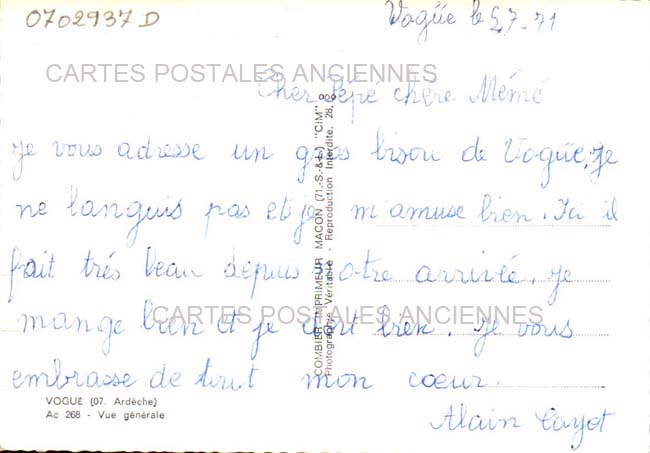 0702937D
Vogüe le 5.7-71
CARTES POSTALES ANCIENNES
Cher Pépé chère Mémé
je vous adresse un gros bisou de Vogüe, je
ne languis pas et je m'amuse bien. Ici il
fait trés beau depuis notre arrivée. je
mange bien et je dort bien. je vous
CARTES POSTALES ANCIENNES
embrasse de tout mon cœur.
Alain Cayot
VOGUÉ (07. Ardèche)
Ac 268 - Vue générale
COMBIER IMPRIMEUR MACON (71.-S.-&-L.) "CIM"
Photographie Véritable - Reproduction Interdite.